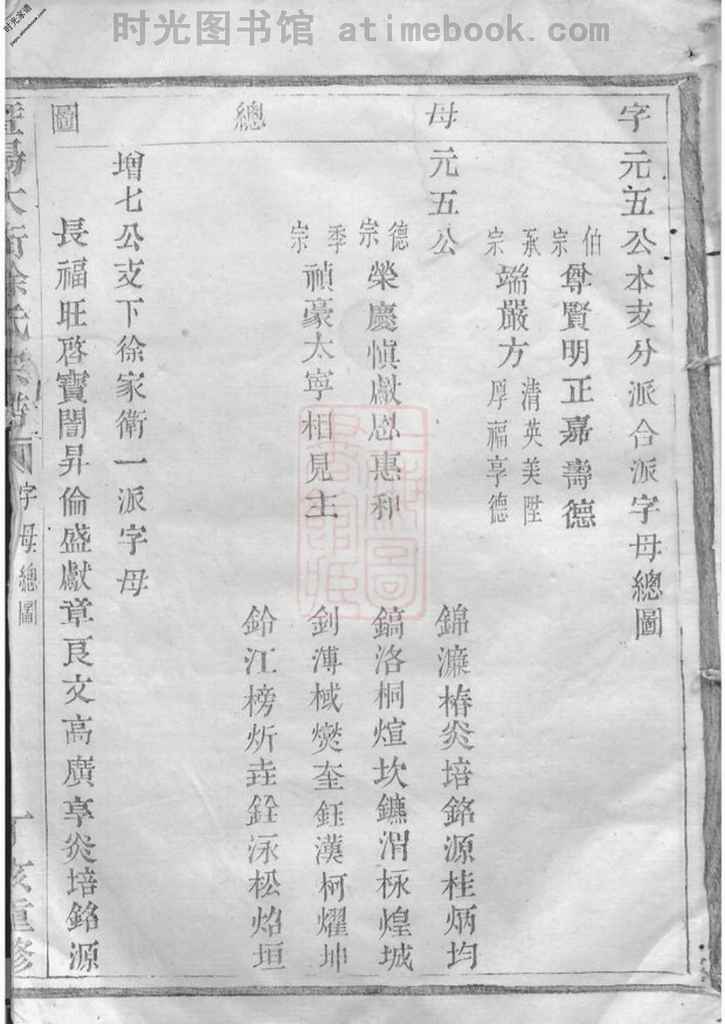 时光图书馆 atimebook.com
时光家谱
字母總圖
元五公本支分派合派字母總圖
伯宗 尊賢明正嘉壽德
承宗 端嚴方 清英美陞
厚福享德
元五公
德宗 榮慶慎獻恩惠和
季宗 禎豪太寧相見主
錦濂椿炎培銘源桂炳均
鎬洛桐煊坎鑣渭楙煌城
釗溥棫燮奎鈺漢柯燿坤
鈴江榜炘垚銓泳松焰垣
增七公支下徐家衛一派字母
長福旺啓寶誾昇倫盛獻章良文高廣享炎培銘源
大街徐氏宗譜
字母總圖
丁亥重修